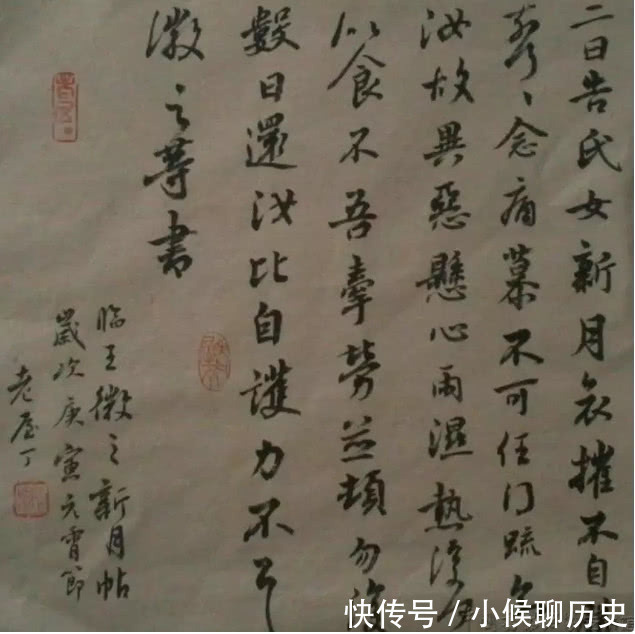 二日告氏女新月哀摧不自
奈何、念痛慕不可任门疏
汝故異惡懸心雨濕熱復
以食不吾牽勞並頓勿
數日還汝比自護力不
徽之等書
临王徽之新月帖
歲次庚寅元宵節
老屋丁
快传号 / 小候聊历史